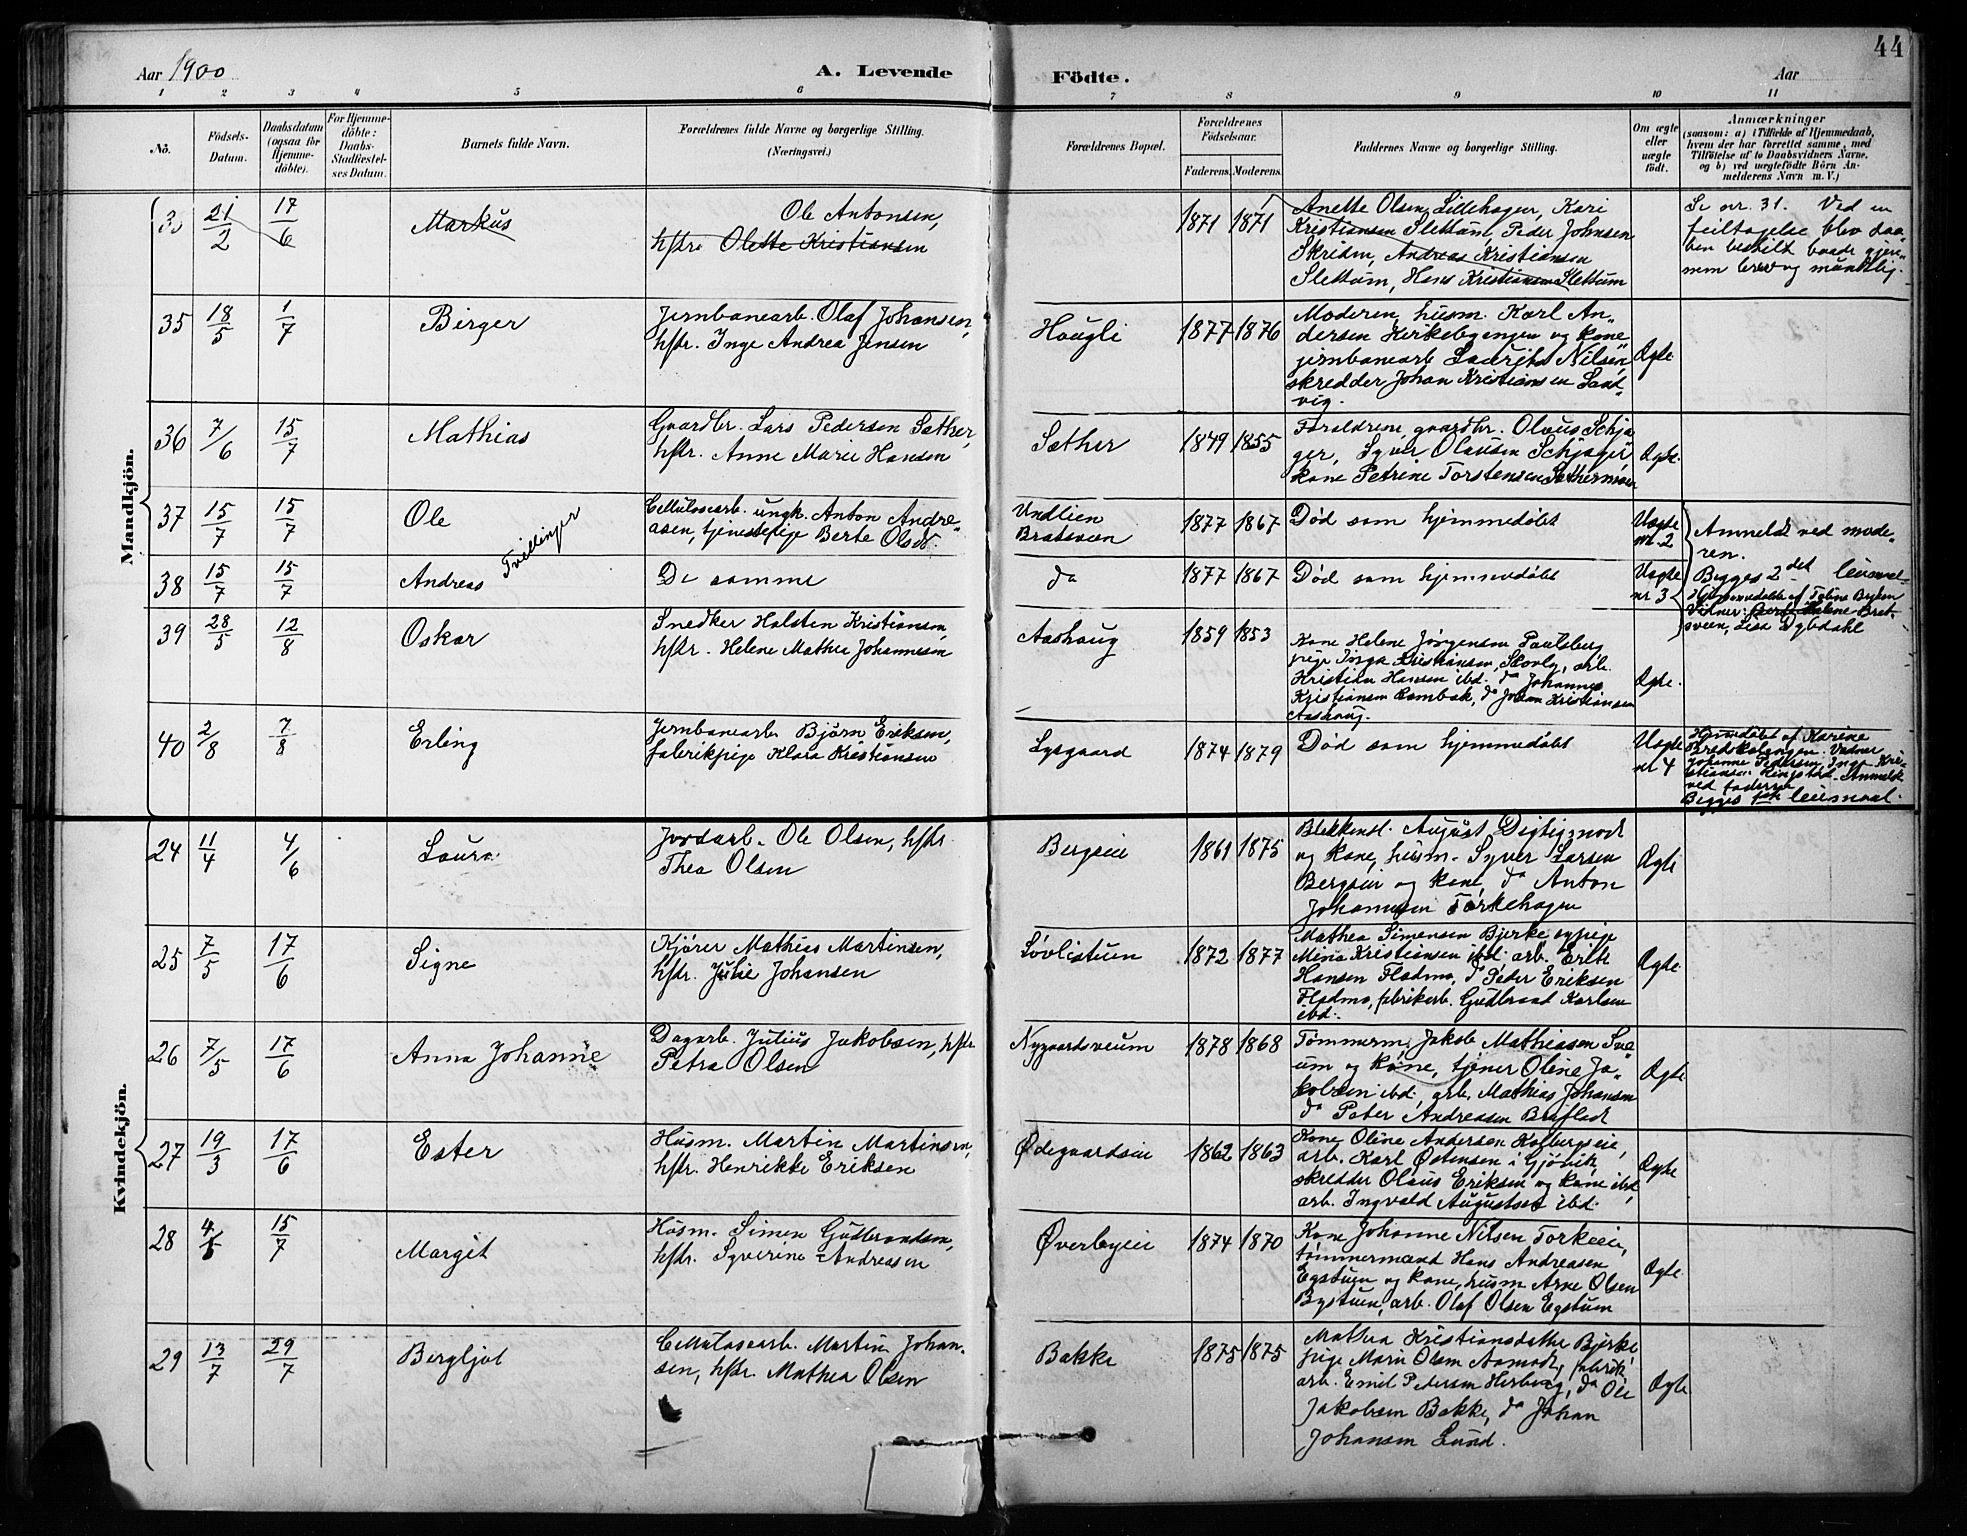 44
Aar 1900
A. Levende Födte.
Aar
1 2 3 4 5 6 7 8 9 10 11
No.
Födsels-
Datum.
Daabsdatum
(ogsaa for
Hjemme-
döbte).
For Hjemme-
döbte:
Daabs-
Stadfæstel-
ses Datum.
Barnets fulde Navn.
Forældrenes fulde Navne og borgerlige Stilling.
(Næringsvei.)
Forældrenes Bopæl.
Forældrenes
Födselsaar.
Faderens. Moderens.
Faddernes Navne og borgerlige Stilling.
Om ægte
eller
uægte
födt.
Anmærkninger
(saasom: a) i Tilfælde af Hjemmedaab,
hvem der har forrettet samme, med
Tilföielse af to Daabsvidners Navne,
og b) ved uægtefödte Börn An-
melderens Navn m. V.)
Mandkjön.
21/2 17/6 Markus
Ole Antonsen,
hstr. Olette Kristiansen
1871 1871
Anette Olsen Lillehagen, Kari
Kristiansen Slettum, Peder Johnsen
Skriden, Andreas Kristiansen
Slettum, Hans Kristiansen Slettum
Se nr. 31. Ved en
feiltagelse blev daa-
ben bestilt baade gjen-
nem brev og mundtlig.
35 18/5 1/7 Birger
Jernbanearb. Olaf Johansen,
hstr. Inge Andrea Jensen
Haugli 1877 1876
Moderen, husm. Karl An-
dersen Kirkebyengen og kone,
jernbanearb Lauritz Nilsen,
skredder Johan Kristiansen Sand-
vig.
Ægte
36 7/6 15/7 Mathias
Gaardbr. Lars Pedersen Sæther,
hstr. Anne Marie Hansen
Sæther 1849 1855
Forældrene gaardbr. Olaus Schja-
ger, Syver Olausen Schjager
kone Petrine Torstensen Sæthermoen
Ægte.
37 15/7 15/7 Ole
Tvillinger
Cellulosearb. ungk. Anton Andre-
asen, tjenestepige Berte Olsdr.
Undlien
Bratsveen
1877 1867 Død som hjemmedøbt
Uægte
nr. 2
Anmeldt ved mode-
ren.
38 15/7 15/7 Andreas
De samme
do 1877 1867 Død som hjemmedøbt
Uægte
nr 3
Begges 2det leiermaal.
Hjemmedøbt af Toline Byken
Vidner: Berte Helene Brat-
sveen, Lisa Dybdahl
39 28/5 12/8 Oskar
Snedker Halsten Kristiansen,
hstr. Helene Mathea Johannesen
Aashaug 1859 1853
Kone Helene Jørgensen Paulsberg
pige Inga Kristiansen, Skovly, arb.
Kristian Hansen ibd. do Johannes
Kristiansen Rambæk, do Johan Kristiansen
Aashaug.
Ægte.
40 2/8 7/8 Erling
Jernbanearb. Bjørn Eriksen,
fabrikpige Klara Kristiansen
Lysgaard 1874 1879 Død som hjemmedøbt
Uægte
nr 4
Hjemdøbt af Karine
Bredskalengen. Vidner
Johanne Pedersen, Inga Kri-
stiansen Ringstad. Anmeldt
ved faderen
Begges 1ste leiermaal.
Kvindekjön.
24 11/4 4/6 Laura
Jordarb. Ole Olsen, hstr.
Thea Olsen
Bergseie 1861 1875
Blikkensl. August Digtigmod
og kone, husm. Syver Larsen
Bergseie og kone, do Anton
Johannesen Torkehagen
Ægte
25 7/5 17/6 Signe
Kjører Mathias Martinsen,
hstr. Julie Johansen
Løvlistuen 1872 1877
Mathea Simensen Bjerke sypige
Mina Kristiansen ibd. arb. Erik
Hansen Fladmo, do Peder Eriksen
Fladmo, fabrikarb. Gudbrand Karlsen
ibd.
Ægte.
26 7/5 17/6 Anna Johanne
Dagarb. Julius Jakobsen, hstr.
Petra Olsen
Nygaardsveum 1878 1868
Tømmerm. Jakob Mathiasen Sve-
um og kone, tjener Oline Ja-
kobsen ibd, arb. Mathias Johansen
do Peter Andreasen Braflad
Ægte
27 19/3 17/6 Ester
Husm. Martin Martinsen,
hstr. Henrikke Eriksen
Ødegaardseie 1862 1863
Kone Oline Andersen Kolbergseie,
arb. Karl Østensen i Gjøvik,
skredder Olaus Eriksen og kone ibd,
arb. Ingvald Augustsen ibd.
Ægte
28 4/5 15/7 Margit
Husm. Simen Gudbrandsen,
hstr. Syverine Andreasen
Øverbyeie 1874 1870
Kone Johanne Nilsen Torkeeie,
tømmermand Hans Andreasen
Egstuen og kone, husm Arne Olsen
Bystuen, arb. Olaf Olsen Egstuen
Ægte.
29 13/7 29/7 Bergljot
Cellulosearb. Martin Johan-
sen, hstr. Mathea Olsen
Bakke 1875 1875
Mathea Kristiansdatter Bjerke
pige Marie Olsen Aamodt, fabrik-
arb. Emil Pedersen Herberg, do Ole
Jakobsen Bakke, do Johan
Johansen Lund.
Ægte